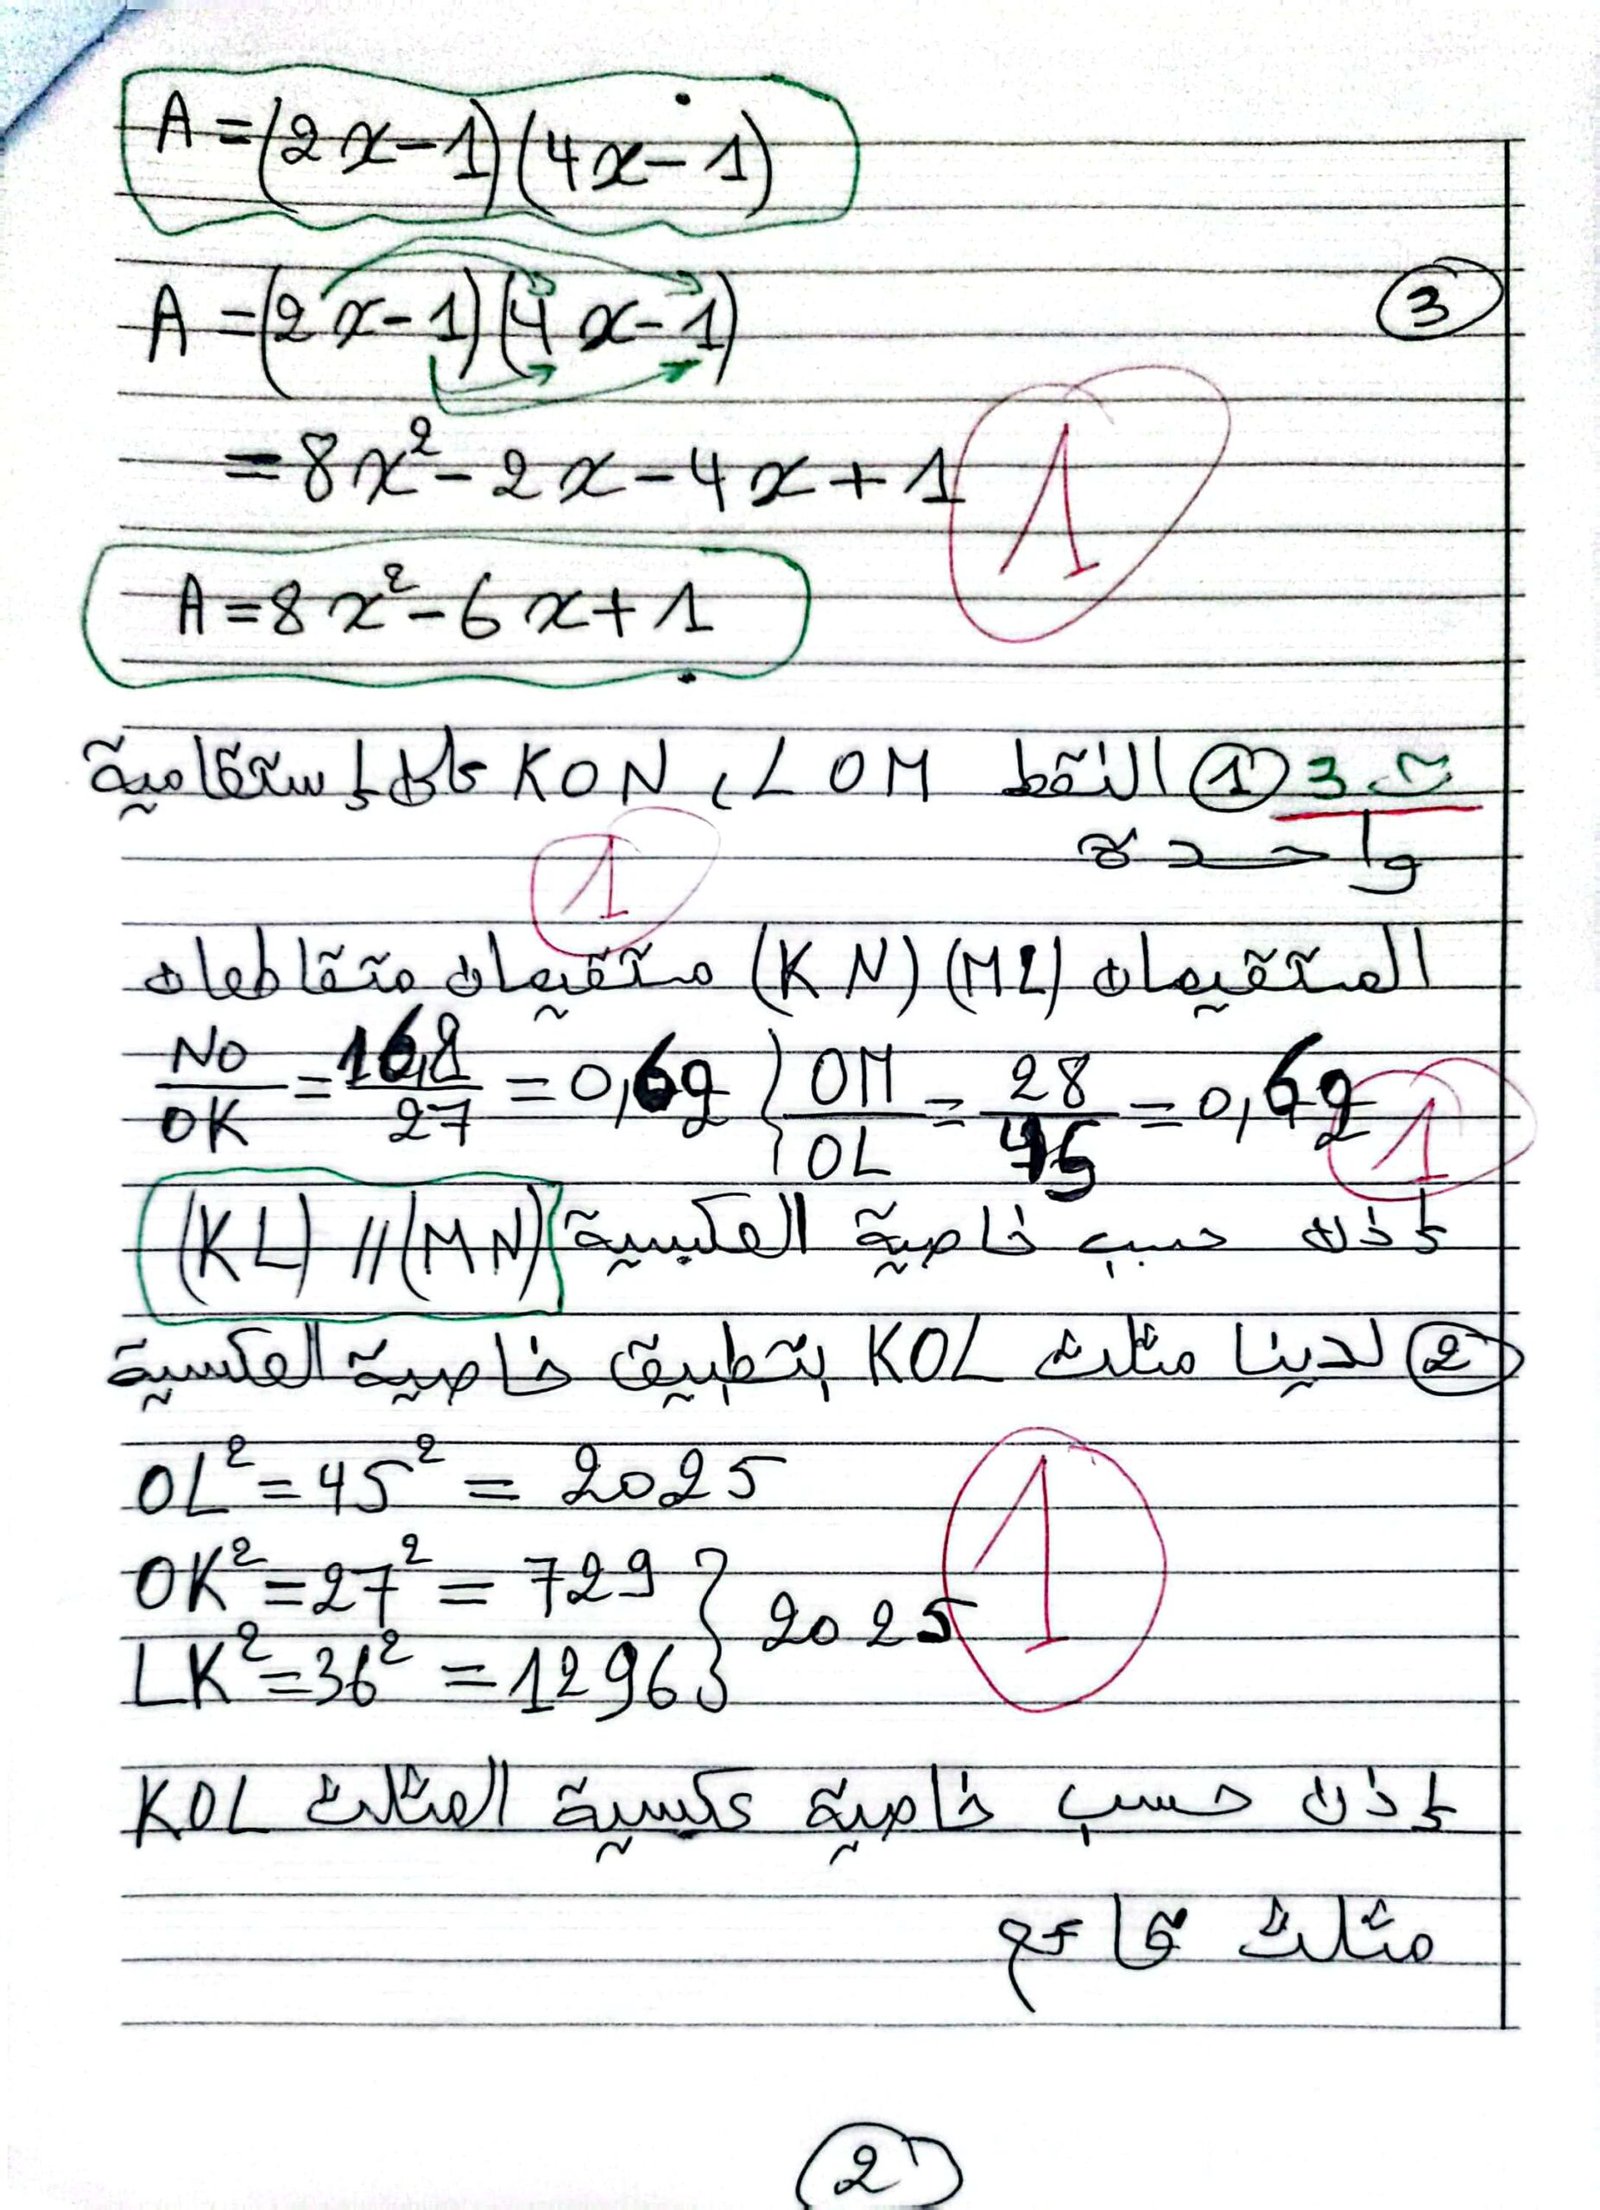 A = (2x - 1)(4x - 1)
③ A = (2x - 1)(4x - 1)
= 8x² - 2x - 4x + 1
1
A = 8x² - 6x + 1
ت 3 ① النقط LOM ، KON على إستقامية
واحدة
1
المستقيمان (ML) (KN) مستقيمان متقاطعان
NO/OK = 16,8/27 = 0,62 } OM/OL = 28/45 = 0,62
1
إذن حسب خاصية العكسية (KL) // (MN)
② لدينا مثلث KOL بتطبيق خاصية العكسية
OL² = 45² = 2025
OK² = 27² = 729
LK² = 36² = 1296
} 2025
1
إذن حسب خاصية عكسية المثلث KOL
مثلث قائم
2